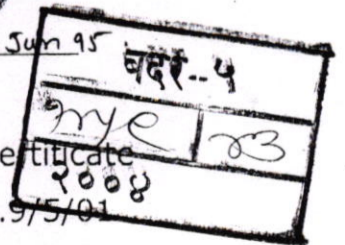 Jun 95
बदर--५
ertificate
२००४
.9/5/01